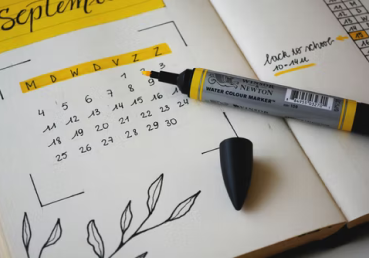 September
M D W D V Z Z
1 2 3
4 5 6 7 8 9
11 12 13 14 15 16 17
18 19 20 21 22 23 24
25 26 27 28 29 30
back to school
10-14H
NEWTON
WATER COLOUR MARKER